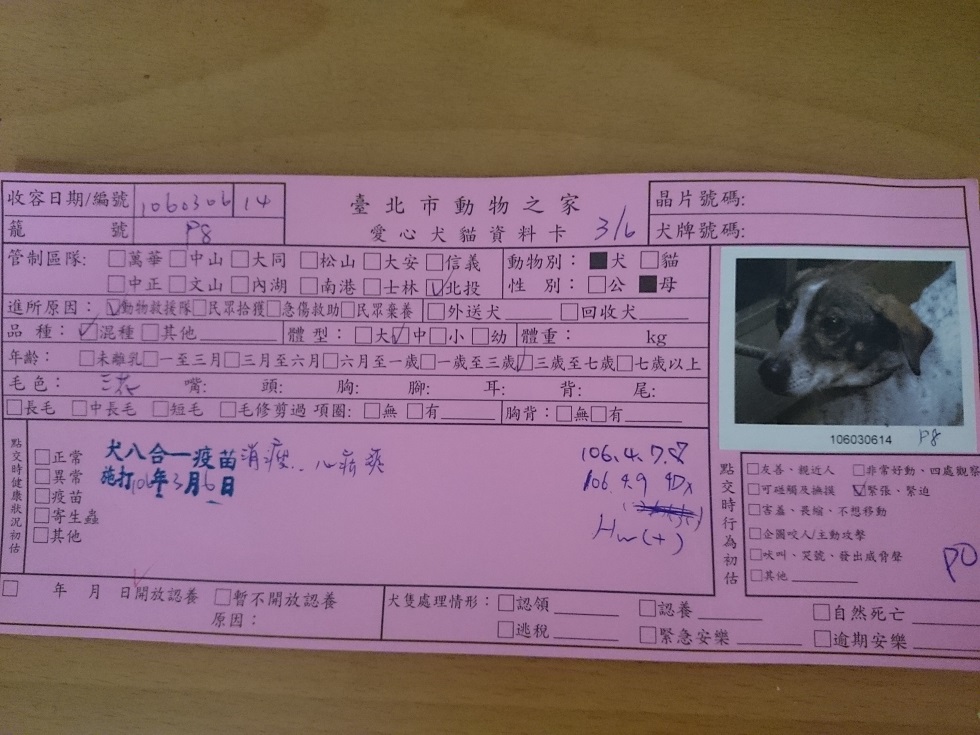 收容日期/編號 1060306 14
籠 號 P8
臺北市動物之家
愛心犬貓資料卡 3/6
晶片號碼:
犬牌號碼:
管制區隊: □萬華 □中山 □大同 □松山 □大安 □信義
□中正 □文山 □內湖 □南港 □士林 ☑北投
動物別: ■犬 □貓
性 別: □公 ■母
進所原因: ☑動物救援隊 □民眾拾獲 □急傷救助 □民眾棄養 □外送犬 □回收犬
品 種: ☑混種 □其他 體 型: □大 ☑中 □小 □幼 體重: kg
年齡: □未離乳 □一至三月 □三月至六月 □六月至一歲 □一歲至三歲 ☑三歲至七歲 □七歲以上
毛色: 三花 嘴: 頭: 胸: 腳: 耳: 背: 尾:
□長毛 □中長毛 □短毛 □毛修剪過 項圈: □無 □有 胸背: □無 □有
106030614 P8
點交時健康狀況初估
□正常
□異常
□疫苗
□寄生蟲
□其他
犬八合一疫苗 消瘦
施打106年3月6日
106.4.7.8
106.4.9 4Dx
Hw(+)
點交時行為初估
□友善、親近人 □非常好動、四處觀察
□可碰觸及撫摸 ☑緊張、緊迫
□害羞、畏縮、不想移動
□企圖咬人/主動攻擊
□吠叫、哭號、發出威脅聲
□其他
PO
□ 年 月 日開放認養 □暫不開放認養
原因:
犬隻處理情形: □認領 □認養 □自然死亡
□逃稅 □緊急安樂 □逾期安樂